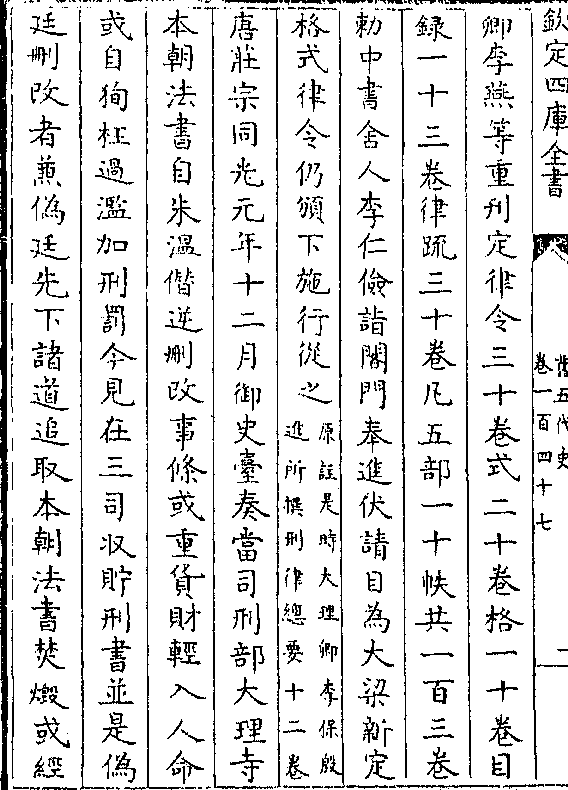 欽定四庫全書
舊五代史
卷一百四十七
二
卿李燕等重刋定律令三十卷式二十卷格一十卷目
録一十三卷律疏三十卷凡五部一十帙共一百三卷
勅中書舍人李仁儉詣閣門奉進伏請目為大梁新定
格式律令仍頒下施行從之原註是時大理卿李保殷
進所撰刑律總要十二卷
唐莊宗同光元年十二月御史臺奏當司刑部大理寺
本朝法書自朱温僭逆刪改事條或重貨財輕入人命
或自狥枉過濫加刑罰今見在三司収貯刑書並是偽
廷刪改者兼偽廷先下諸道追取本朝法書焚燬或經